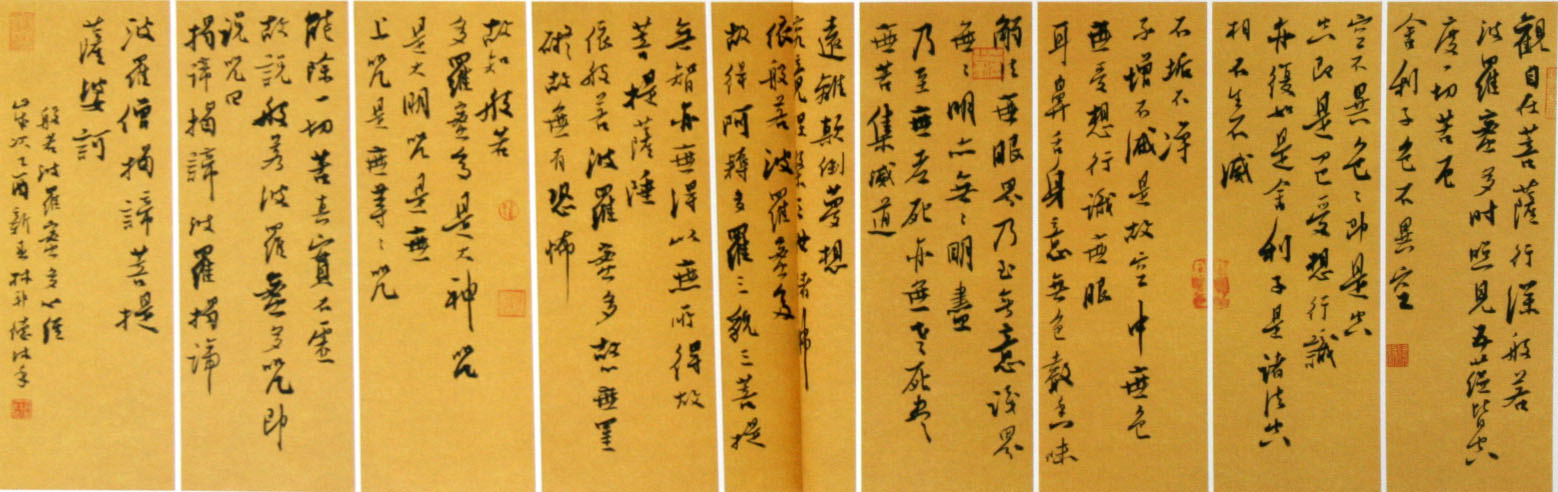 觀自在菩薩行深般若
波羅蜜多時照見五蘊皆空
度一切苦厄
舍利子色不異空
空不異色々即是空
空即是色受想行識
亦復如是舍利子是諸法空
相不生不滅
不垢不淨
不增不減是故空中無色
無受想行識無眼
耳鼻舌身意無色聲香味
觸法無眼界乃至無意識界
無々明亦無々明盡
乃至無老死亦無老死盡
無苦集滅道
遠離顛倒夢想
究竟涅槃三世諸佛
依般若波羅蜜多
故得阿耨多羅三藐三菩提
無智亦無得以無所得故
菩提薩埵
依般若波羅蜜多故心無罣
礙故無有恐怖
故知般若
波羅蜜多是大神咒
是大明咒是無
上咒是無等々咒
能除一切苦真實不虛
故說般若波羅蜜多咒即
說咒曰
揭諦揭諦波羅揭諦
波羅僧揭諦菩提
薩婆訶
般若波羅蜜多心經
歲次丁酉新春林